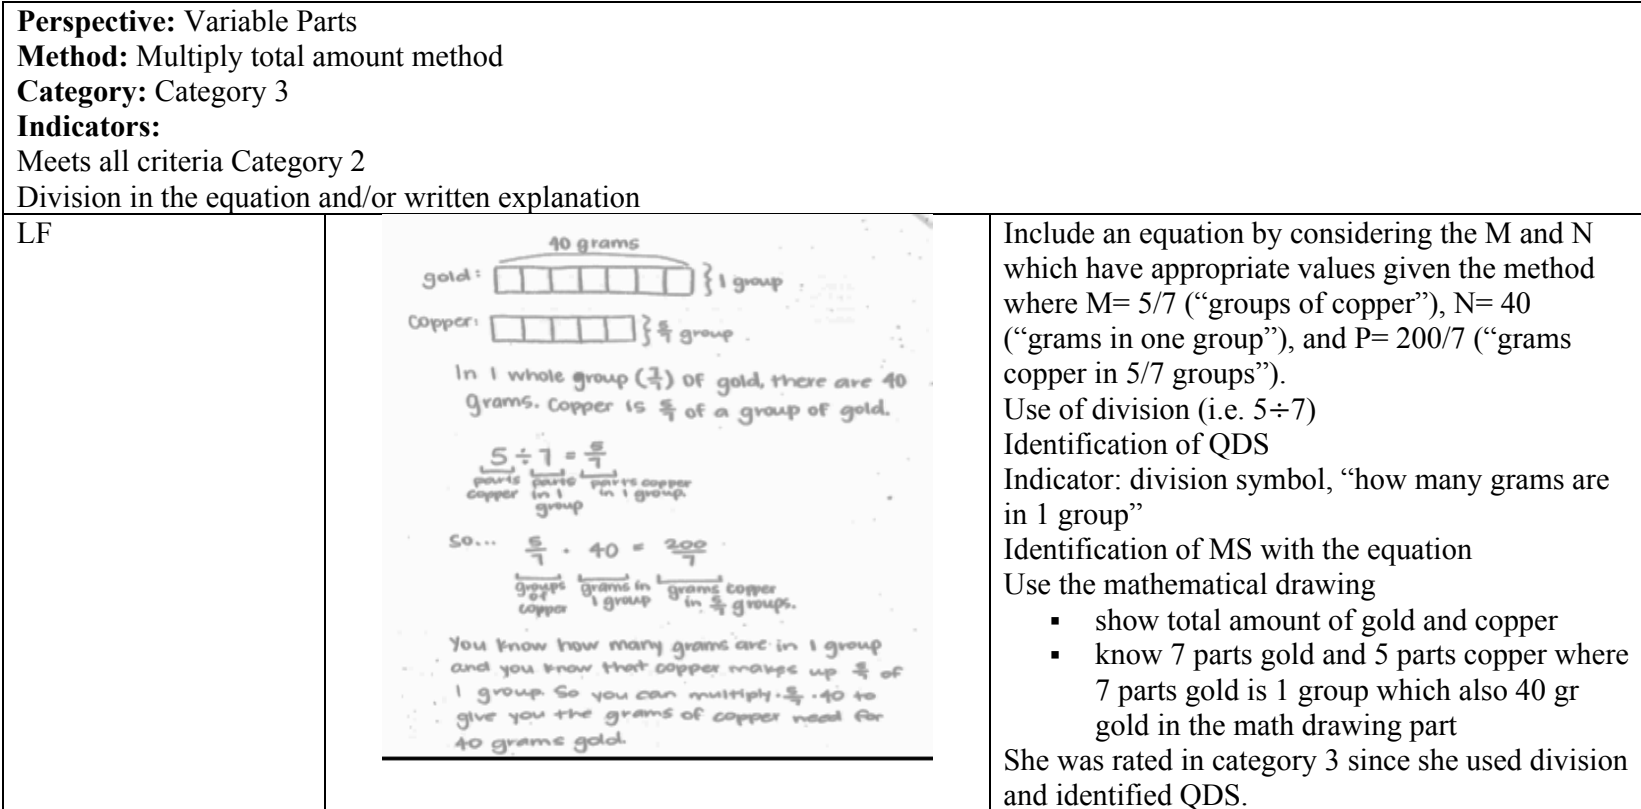 Perspective: Variable Parts
Method: Multiply total amount method
Category: Category 3
Indicators:
Meets all criteria Category 2
Division in the equation and/or written explanation
LF
40 grams
gold: } 1 group
Copper: } 5/7 group
In 1 whole group (7/7) of gold, there are 40
grams. Copper is 5/7 of a group of gold.
5 ÷ 7 = 5/7
parts parts parts copper
copper in 1 in 1 group.
group
So... 5/7 · 40 = 200/7
groups grams in grams copper
of 1 group in 5/7 groups.
copper
You know how many grams are in 1 group
and you know that copper makes up 5/7 of
1 group. So you can multiply 5/7 · 40 to
give you the grams of copper need for
40 grams gold.
Include an equation by considering the M and N
which have appropriate values given the method
where M= 5/7 (“groups of copper”), N= 40
(“grams in one group”), and P= 200/7 (“grams
copper in 5/7 groups”).
Use of division (i.e. 5÷7)
Identification of QDS
Indicator: division symbol, “how many grams are
in 1 group”
Identification of MS with the equation
Use the mathematical drawing
▪ show total amount of gold and copper
▪ know 7 parts gold and 5 parts copper where
7 parts gold is 1 group which also 40 gr
gold in the math drawing part
She was rated in category 3 since she used division
and identified QDS.